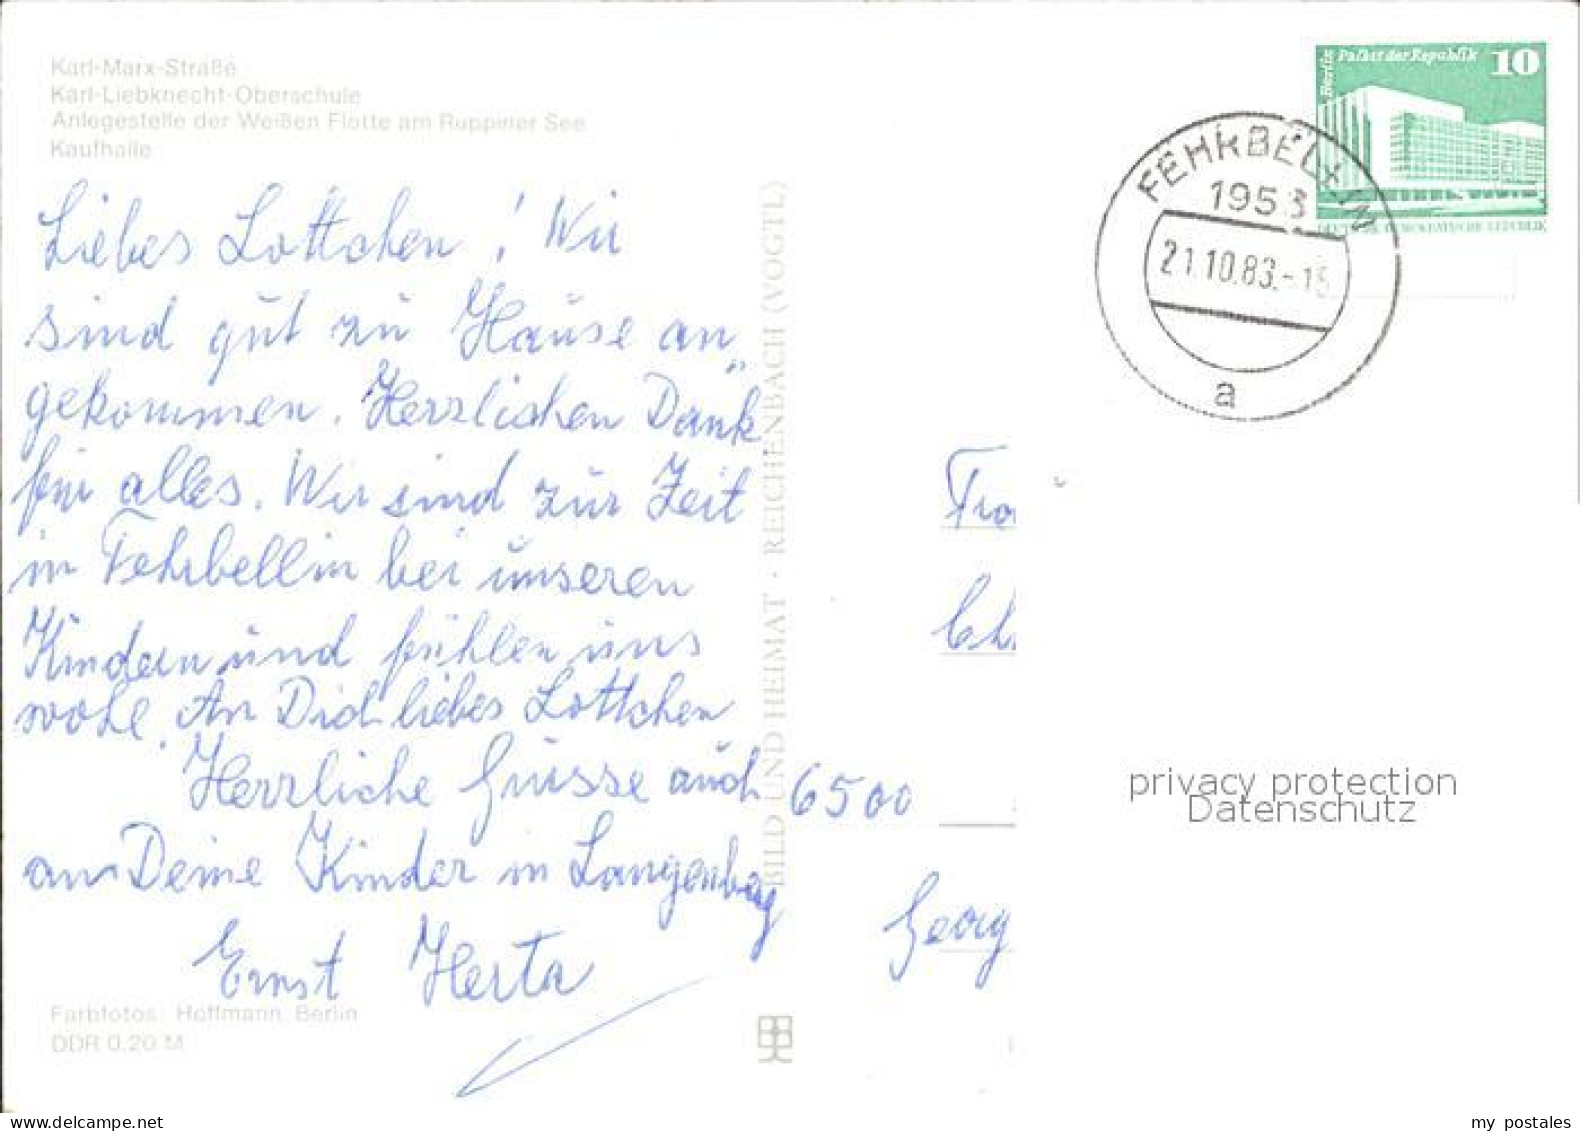 Karl-Marx-Straße
Karl-Liebknecht-Oberschule
Anlegestelle der Weißen Flotte am Ruppiner See
Kaufhalle
Liebes Lottchen! Wir
sind gut zu Hause an„
gekommen. Herzlichen Dank
für alles. Wir sind zur Zeit
in Fehrbellin bei unseren
Kindern und fühlen uns
wohl. An Dich liebes Lottchen
Herzliche Grüsse auch
an Deine Kinder in Langenberg
Ernst Herta
Farbfotos: Hoffmann, Berlin
DDR 0,20 M
BILD UND HEIMAT · REICHENBACH (VOGTL)
Berlin
Palast der Republik 10
DEUTSCHE DEMOKRATISCHE REPUBLIK
FEHRBELLIN
1953
21.10.83.-15
a
6500
Georg
privacy protection
Datenschutz
my postales